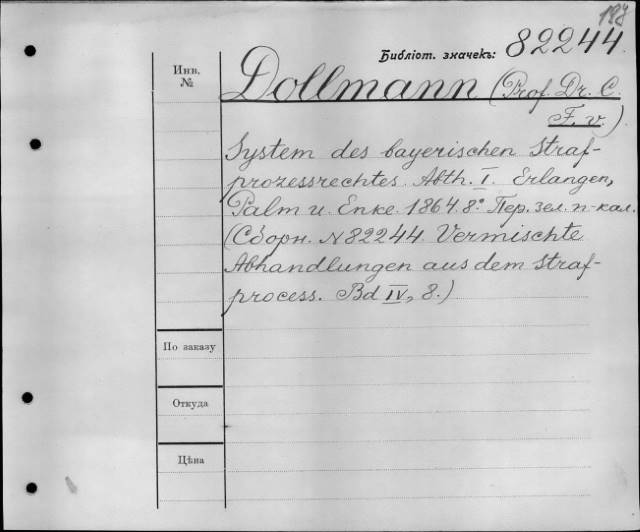 197
Библіот. значекъ: 82244
Инв.
№
Dollmann (Prof. Dr. C.
F. v.)
System des bayerischen Straf-
prozessrechtes. Abth. I. Erlangen,
Palm u. Enke. 1864. 8º. Пер. зел. п-кал.
(Сборн. № 82244. Vermischte
Abhandlungen aus dem Straf-
process. Bd IV, 8.)
По заказу
Откуда
Цѣна